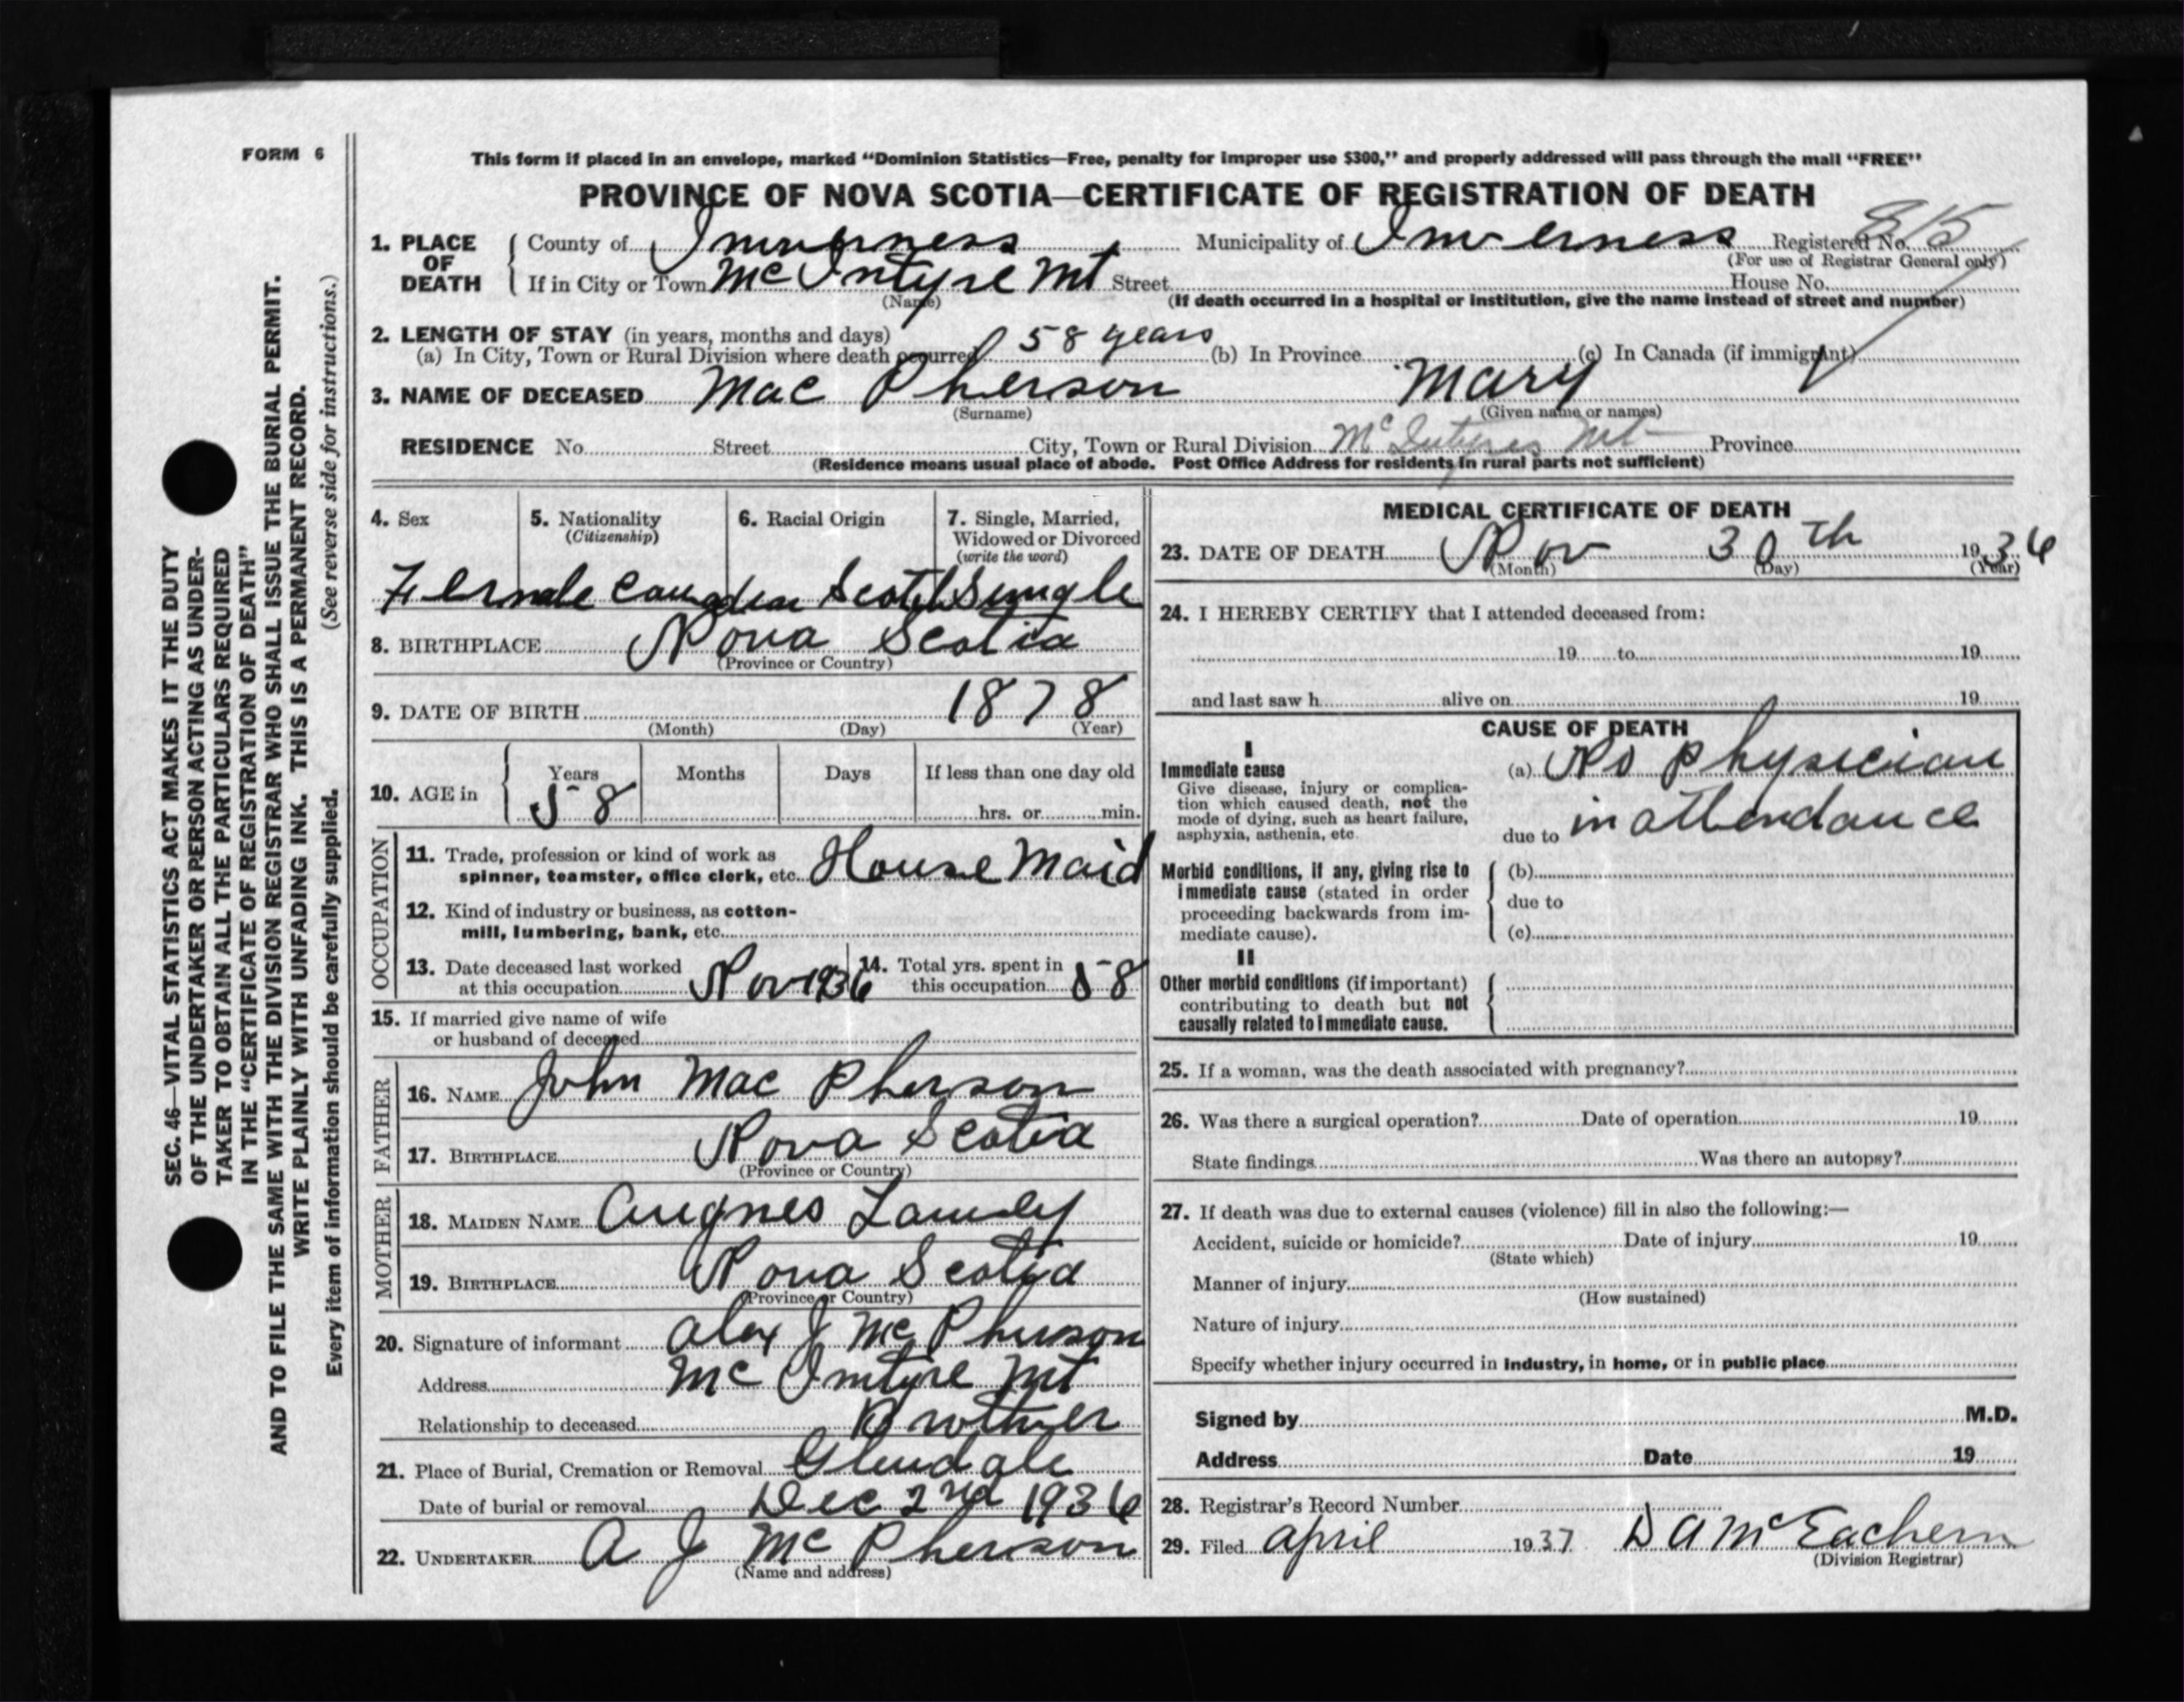 FORM 6
This form if placed in an envelope, marked “Dominion Statistics—Free, penalty for improper use $300,” and properly addressed will pass through the mail “FREE”
PROVINCE OF NOVA SCOTIA—CERTIFICATE OF REGISTRATION OF DEATH
1. PLACE OF DEATH { County of Inverness Municipality of Inverness Registered No. 815
(For use of Registrar General only)
If in City or Town Mc Intyre Mt Street House No.
(Name) (If death occurred in a hospital or institution, give the name instead of street and number)
2. LENGTH OF STAY (in years, months and days)
(a) In City, Town or Rural Division where death occurred 58 years (b) In Province (c) In Canada (if immigrant)
3. NAME OF DECEASED Mac Pherson Mary
(Surname) (Given name or names)
RESIDENCE No. Street City, Town or Rural Division McIntyres Mt Province
(Residence means usual place of abode. Post Office Address for residents in rural parts not sufficient)
4. Sex 5. Nationality (Citizenship) 6. Racial Origin 7. Single, Married, Widowed or Divorced (write the word)
Female Canadian Scotch Single
8. BIRTHPLACE Nova Scotia
(Province or Country)
9. DATE OF BIRTH 1878
(Month) (Day) (Year)
10. AGE in { Years Months Days If less than one day old
58 hrs. or min.
OCCUPATION
11. Trade, profession or kind of work as
spinner, teamster, office clerk, etc. House Maid
12. Kind of industry or business, as cotton-
mill, lumbering, bank, etc.
13. Date deceased last worked
at this occupation Nov 1936
14. Total yrs. spent in
this occupation 58
15. If married give name of wife
or husband of deceased
FATHER
16. NAME John Mac Pherson
17. BIRTHPLACE Nova Scotia
(Province or Country)
MOTHER
18. MAIDEN NAME
19. BIRTHPLACE Nova Scotia
(Province or Country)
20. Signature of informant Alex J Mc Pherson
Address Mc Intyre Mt
Relationship to deceased Brother
21. Place of Burial, Cremation or Removal Glendale
Date of burial or removal Dec 2nd 1936
22. UNDERTAKER A J Mc Pherson
(Name and address)
MEDICAL CERTIFICATE OF DEATH
23. DATE OF DEATH Nov 30th 1936
(Month) (Day) (Year)
24. I HEREBY CERTIFY that I attended deceased from:
19 to 19
and last saw h alive on 19
CAUSE OF DEATH
I
Immediate cause
Give disease, injury or complica-
tion which caused death, not the
mode of dying, such as heart failure,
asphyxia, asthenia, etc.
(a) No physician
due to in attendance
Morbid conditions, if any, giving rise to
immediate cause (stated in order
proceeding backwards from im-
mediate cause).
(b)
due to
(c)
II
Other morbid conditions (if important)
contributing to death but not
causally related to immediate cause.
25. If a woman, was the death associated with pregnancy?
26. Was there a surgical operation? Date of operation 19
State findings Was there an autopsy?
27. If death was due to external causes (violence) fill in also the following:—
Accident, suicide or homicide? Date of injury 19
(State which)
Manner of injury
(How sustained)
Nature of injury
Specify whether injury occurred in industry, in home, or in public place
Signed by M.D.
Address Date 19
28. Registrar's Record Number
29. Filed April 1937 D A McEachern
(Division Registrar)
SEC. 46—VITAL STATISTICS ACT MAKES IT THE DUTY
OF THE UNDERTAKER OR PERSON ACTING AS UNDER-
TAKER TO OBTAIN ALL THE PARTICULARS REQUIRED
IN THE “CERTIFICATE OF REGISTRATION OF DEATH”
AND TO FILE THE SAME WITH THE DIVISION REGISTRAR WHO SHALL ISSUE THE BURIAL PERMIT.
WRITE PLAINLY WITH UNFADING INK. THIS IS A PERMANENT RECORD.
Every item of information should be carefully supplied. (See reverse side for instructions.)